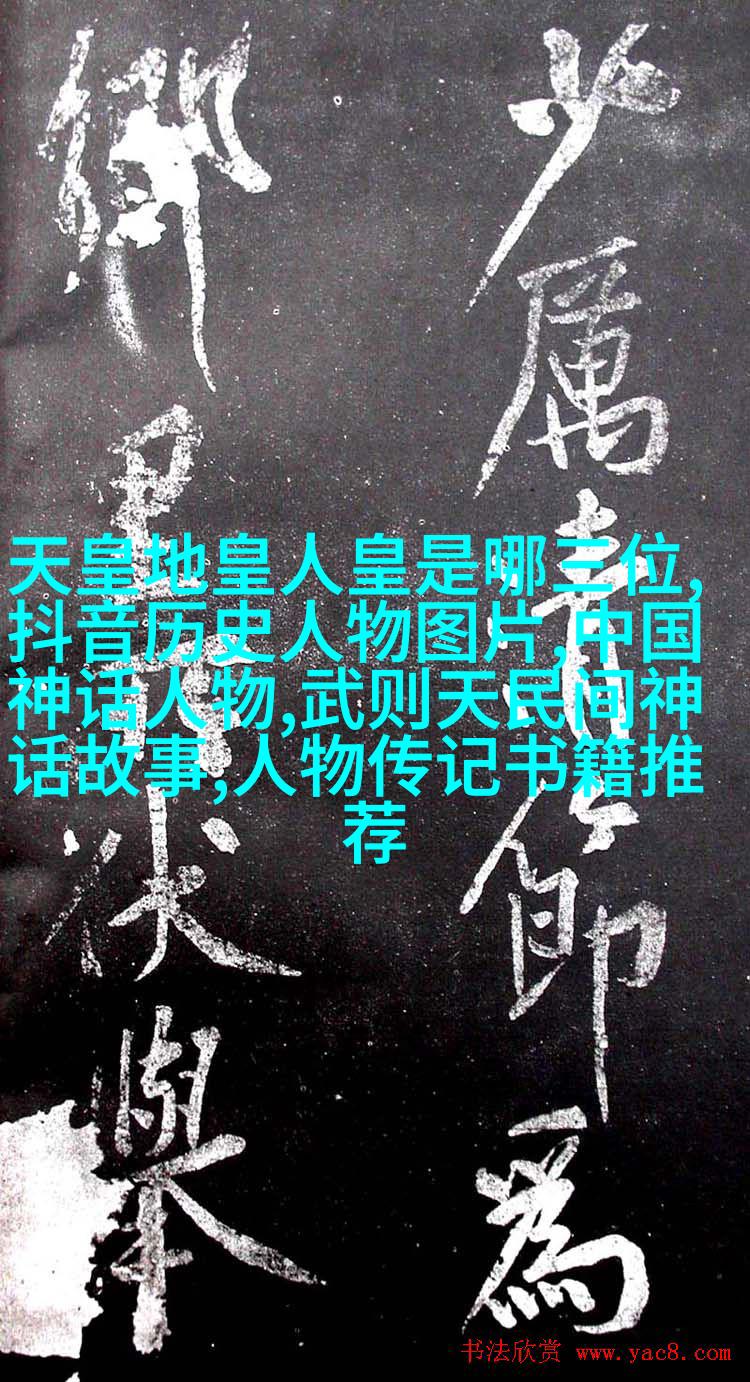 少厲節為
鄉里伏舉
天皇地皇人皇是哪三位,
抖音历史人物图片,中国
神话人物,武则天民间神
话故事,人物传记书籍推
荐
书法欣赏 www.yac8.com